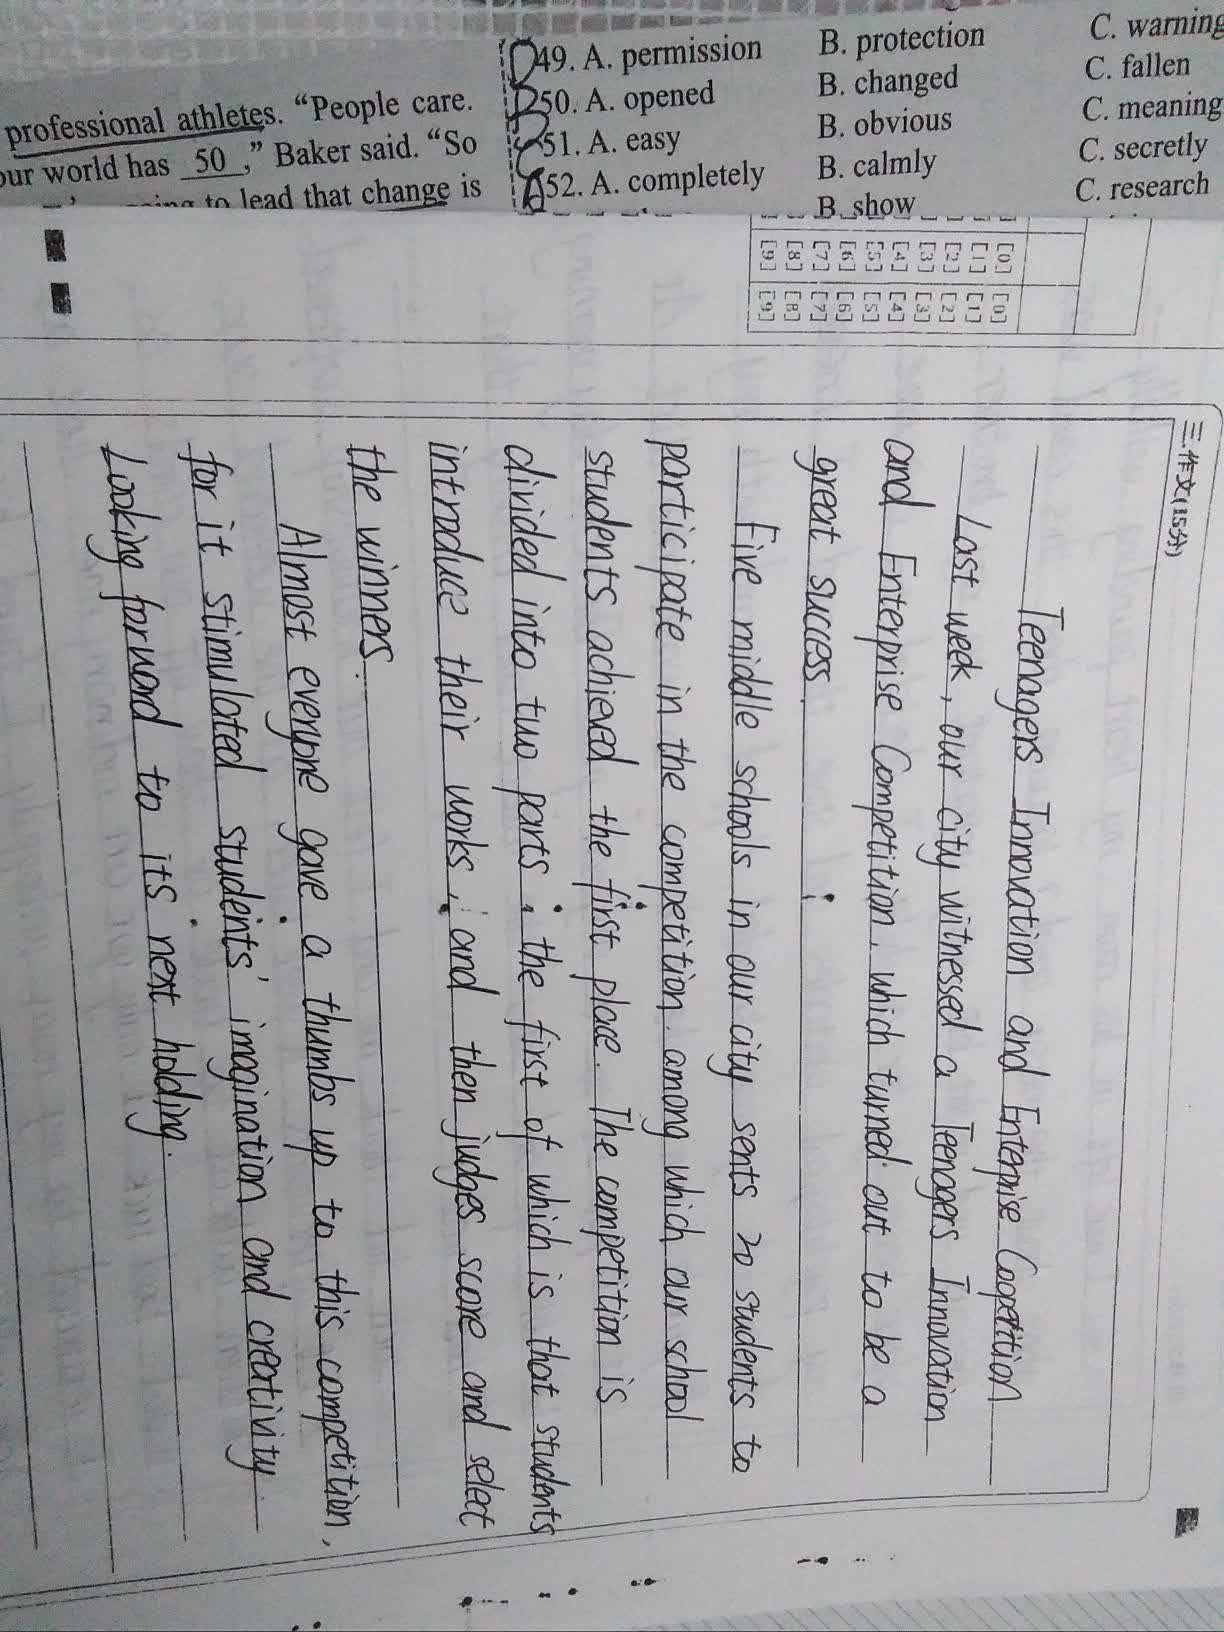 professional athletes. “People care.
our world has 50 ,” Baker said. “So
to lead that change is
D49. A. permission B. protection C. warning
50. A. opened B. changed C. fallen
51. A. easy B. obvious C. meaning
52. A. completely B. calmly C. secretly
B. show C. research
[0] [1] [2] [3] [4] [5] [6] [7] [8] [9]
[0] [1] [2] [3] [4] [5] [6] [7] [8] [9]
三.作文(15分)
Teenagers Innovation and Enterprise Coopetition
Last week, our city witnessed a Teenagers Innovation
and Enterprise Competition, which turned out to be a
great success.
Five middle schools in our city sents 20 students to
participate in the competition, among which our school
students achieved the first place. The competition is
divided into two parts, the first of which is that students
introduce their works, and then judges score and select
the winners.
Almost everyone gave a thumbs up to this competition,
for it stimulated students' imagination and creativity.
Looking forward to its next holding.